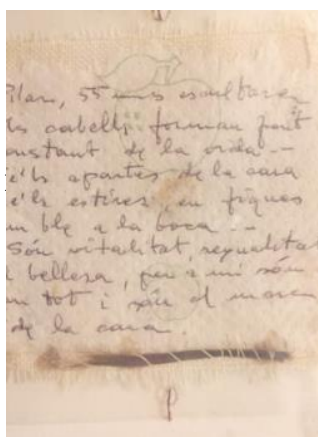 Pilar, 55 anys escultora
Els cabells formen part
constant de la vida --
te'ls apartes de la cara
te'ls estires, en fiques
un ble a la boca --
Són vitalitat, sexualitat
i bellesa, per a mi són
un tot i són el marc
de la cara.